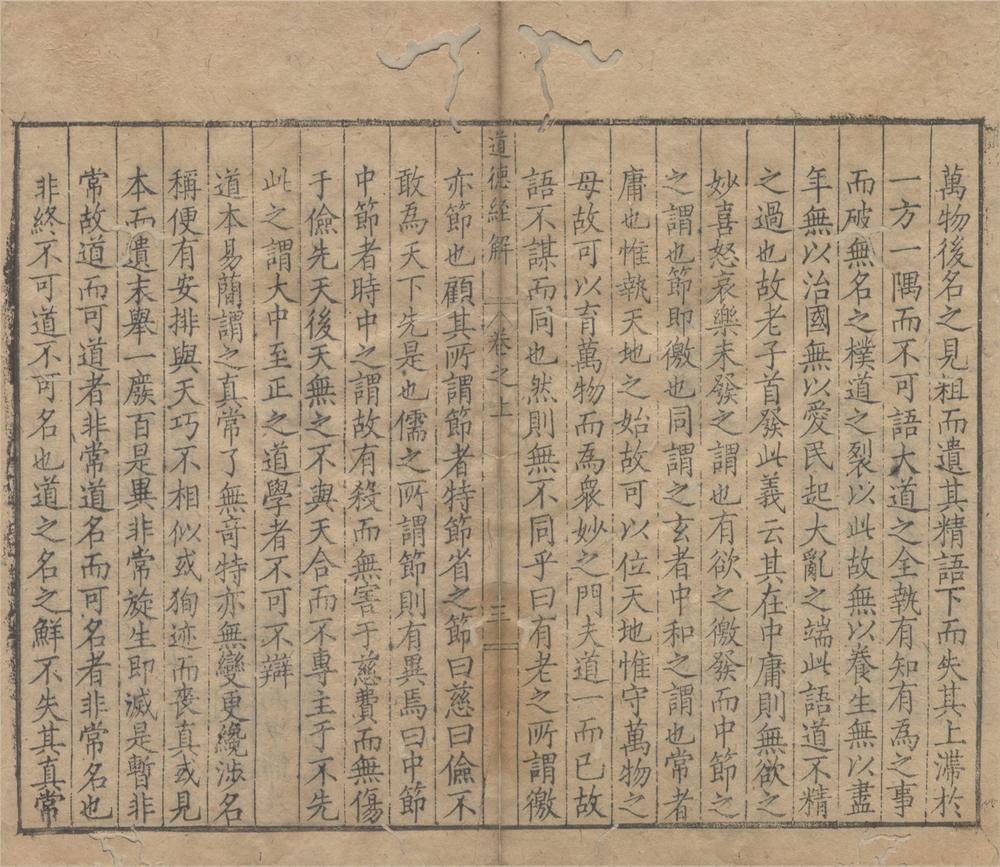 萬物後名之見粗而遺其精語下而失其上滯於
一方一隅而不可語大道之全執有知有為之事
而破無名之樸道之裂以此故無以養生無以盡
年無以治國無以愛民起大亂之端此語道不精
之過也故老子首發此義云其在中庸則無欲之
妙喜怒哀樂未發之謂也有欲之徼發而中節之
之謂也節即徼也同謂之玄者中和之謂也常者
庸也惟執天地之始故可以位天地惟守萬物之
母故可以育萬物而為衆妙之門夫道一而已故
語不謀而同也然則無不同乎曰有老之所謂徼
道德經解 卷之上 三
亦節也顧其所謂節者特節省之節曰慈曰儉不
敢為天下先是也儒之所謂節則有異焉曰中節
中節者時中之謂故有殺而無害于慈費而無傷
于儉先天後天無之不與天合而不專主于不先
此之謂大中至正之道學者不可不辯
道本易蕳謂之真常了無竒特亦無變更纔涉名
稱便有安排與天巧不相似或狥迹而喪真或見
本而遺末舉一廢百是異非常旋生即滅是暫非
常故道而可道者非常道名而可名者非常名也
非終不可道不可名也道之名之鮮不失其真常